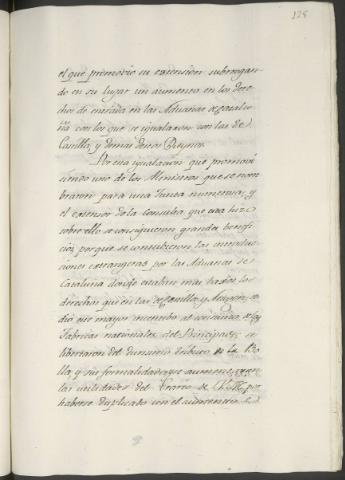 125
el que promovio su extension subrogan-
do en su lugar un aumento en los dere-
chos de entrada en las Aduanas de Catalu-
ña con los que se igualaron con las de
Castilla, y demas de los Reynos.
Por esta igualacion que promovi
siendo uno de los Ministros que se nom-
braron para una Junta numerosa, y
el extensor de la Consulta que esta hizo
sobre ello se consiguieron grandes benefi-
cios, porque se contubieron las introduc-
ciones extrangeras por las Aduanas de
Cataluña donde estaban mas bajos los
derechos que en las de Castilla, y Aragon, se
dio que mayor incremento al consumo de las
Fabricas nacionales del Principado, se
libertaron del durisimo tributo de la Bo-
lla, y sus formalidades, y se aumentaron
las utilidades del Erario de V.M. por
haberse duplicado con el aumento de